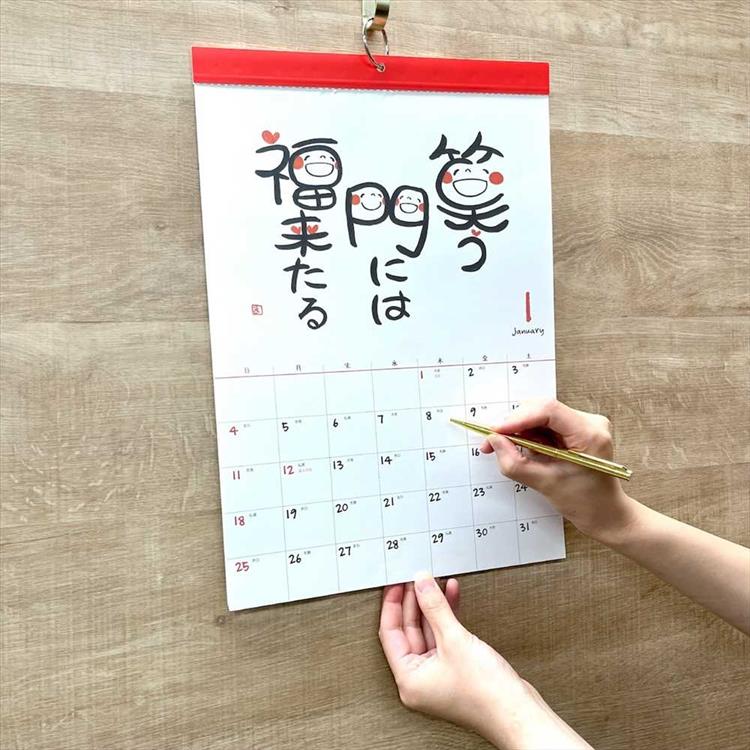 笑う
門には
福来たる
1
January
日 月 火 水 木 金 土
1 2 3
4 5 6 7 8 9
11 12 13 14 15 16
18 19 20 21 22 23 24
25 26 27 28 29 30 31